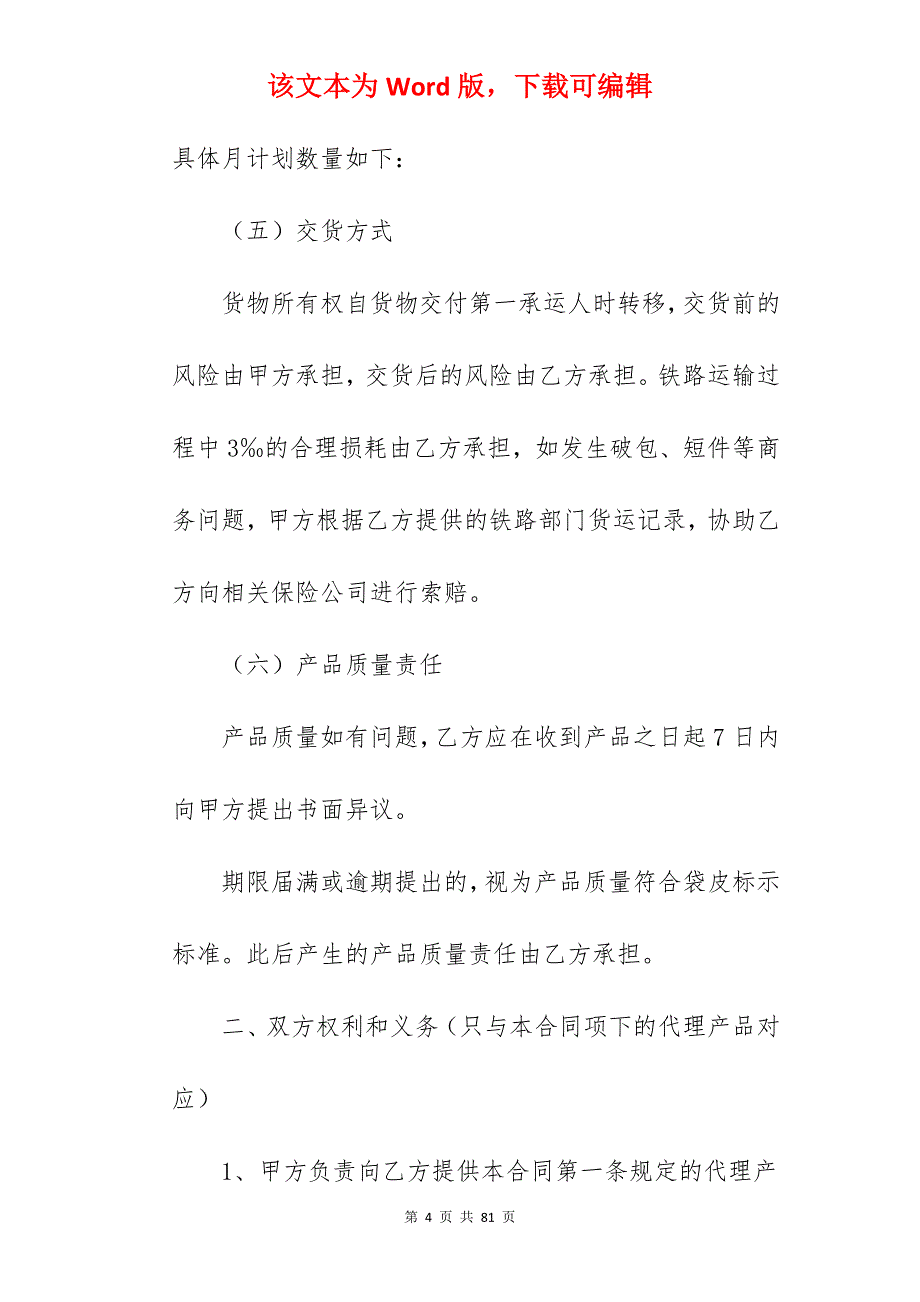 该文本为 Word 版，下载可编辑
具体月计划数量如下：
（五）交货方式
货物所有权自货物交付第一承运人时转移，交货前的
风险由甲方承担，交货后的风险由乙方承担。铁路运输过
程中 3‰的合理损耗由乙方承担，如发生破包、短件等商
务问题，甲方根据乙方提供的铁路部门货运记录，协助乙
方向相关保险公司进行索赔。
（六）产品质量责任
产品质量如有问题，乙方应在收到产品之日起 7 日内
向甲方提出书面异议。
期限届满或逾期提出的，视为产品质量符合袋皮标示
标准。此后产生的产品质量责任由乙方承担。
二、双方权利和义务（只与本合同项下的代理产品对
应）
1、甲方负责向乙方提供本合同第一条规定的代理产
第 4 页 共 81 页